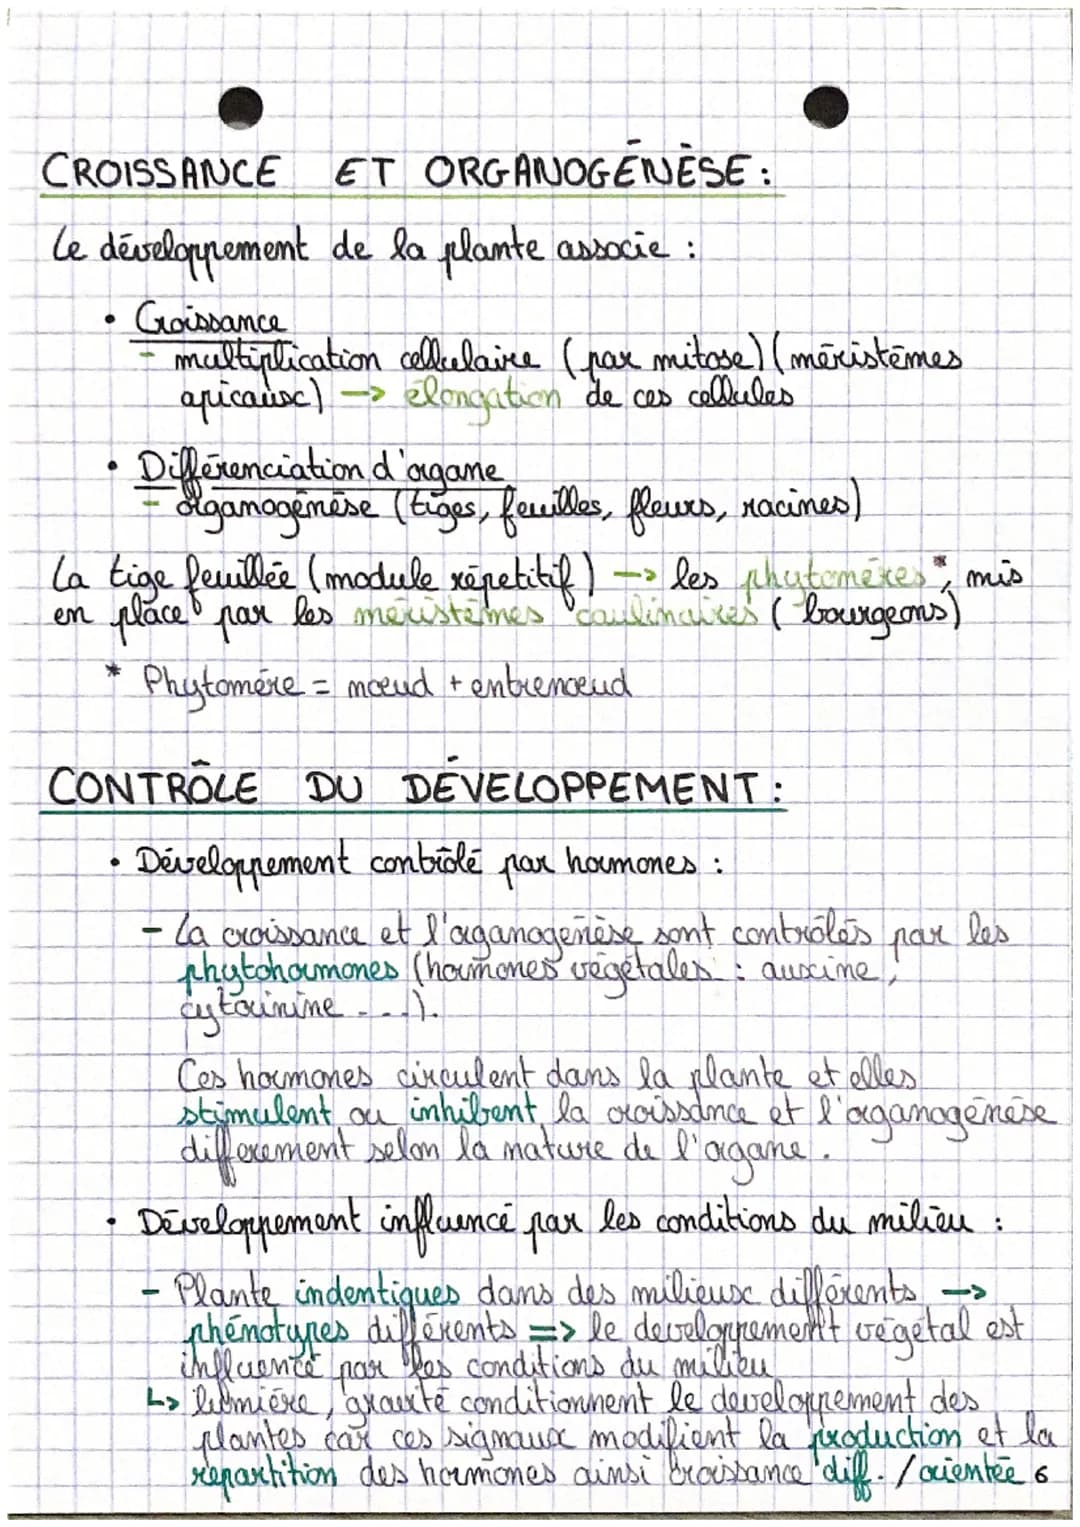 CROISSANCE ET ORGANOGÉNÈSE :
Le développement de la plante associe :
• Croissance
- multiplication cellulaire (par mitose) (méristèmes
apicaux) —> élongation de ces cellules
• Différenciation d'organe
- organogénèse (tiges, feuilles, fleurs, racines)
La tige feuillée (module répetitif) —> les phytomères*, mis
en place par les méristèmes caulinaires (bourgeons)
* Phytomère = nœud + entrenœud
CONTRÔLE DU DÉVELOPPEMENT :
• Développement contrôlé par hormones :
- La croissance et l'organogénèse sont contrôlés par les
phytohormones (hormones végétales : auxine,
cytoinine ....).
Ces hormones circulent dans la plante et elles
stimulent ou inhibent la croissance et l'organogénèse
differement selon la nature de l'organe.
• Développement influencé par les conditions du milieu :
- Plante indentiques dans des milieux différents —>
phénotypes différents => le developpement végétal est
influencé par les conditions du milieu
↳ lumière, gravité conditionnent le developpement des
plantes car ces signaux modifient la production et la
répartition des hormones ainsi croissance diff. / orientée 6